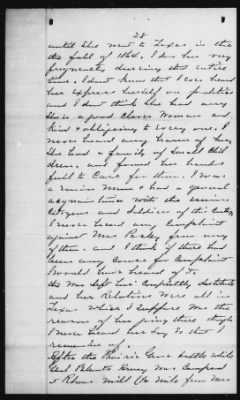 28
until she went to Texas in the
the fall of 1864. I saw her very
frequently during this entire
time. I don't know that I ever heard
her express herself on politics
and I don't think she had any
She is a good clever woman and
kind & obliging to every one. I
never heard any harm of her,
She had a family of small chil
dren, and found her hands
full to care for them. I was
a Union man & had a general
acquaintance with the union
Citizens and Soldiers of this County
I never heard any Complaint
against Mrs from any
of them. and I think if there had
been any cause for Complaint
I would have heard of it.
As Mrs left her destitute
and her Relatives were all in
Texas which I suppose was the
reason of her going there though
I never heard her say so that I
remember of.
After the Prairie Grove battle while
Genl Blunts Army was Camped
at Rheas Mill (1/2 mile from Mrs